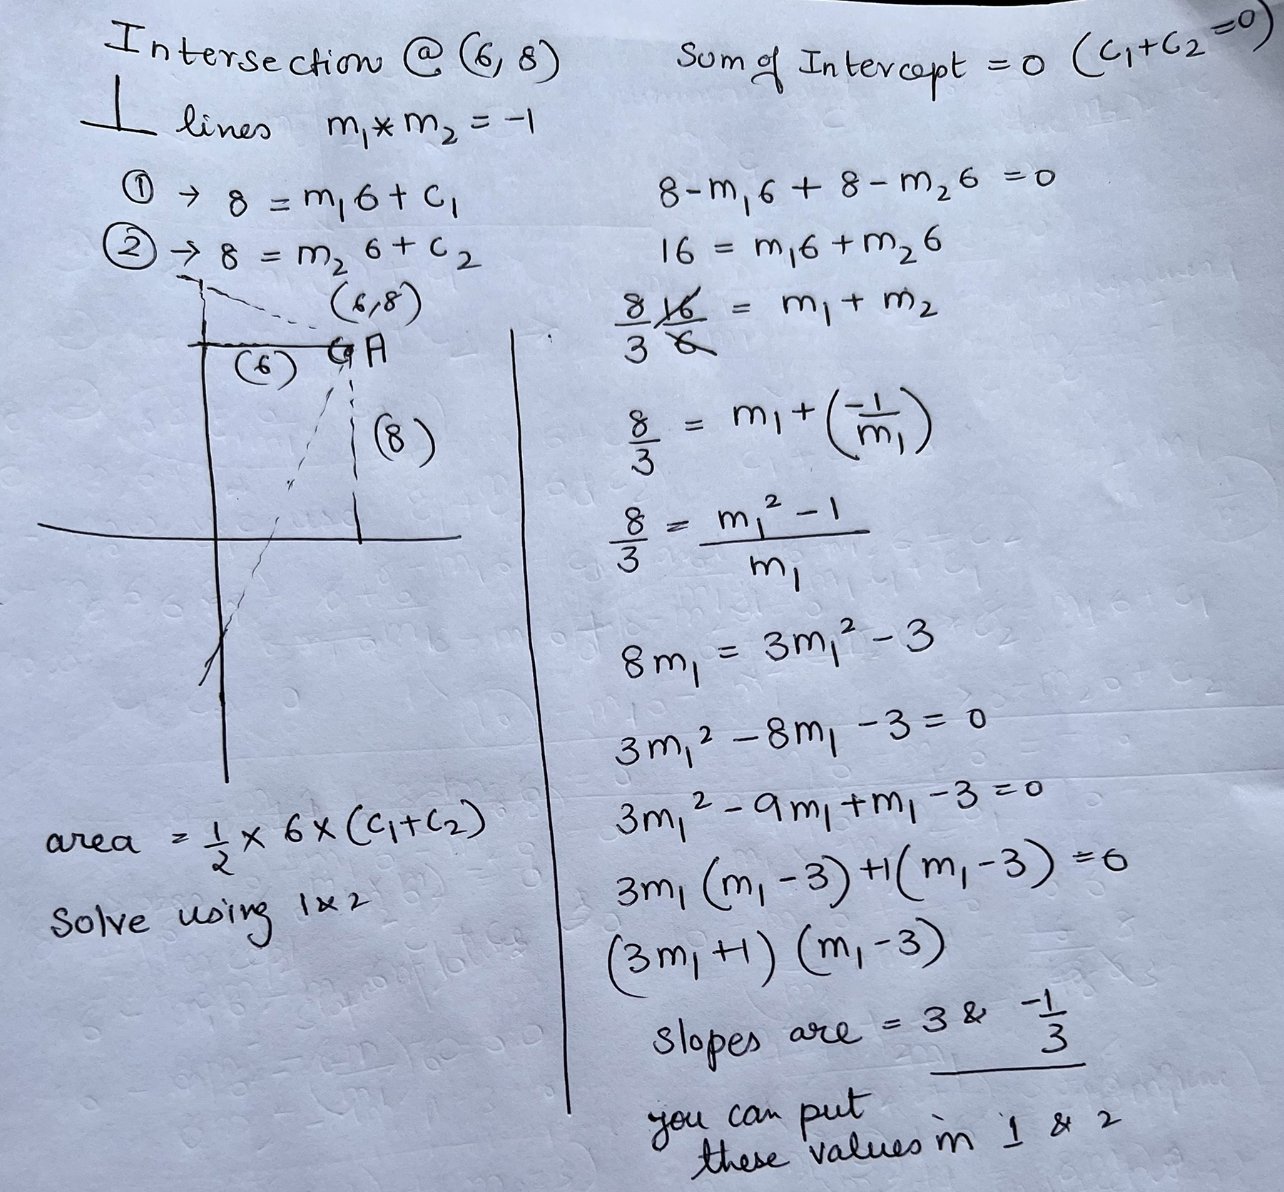 Intersection @ (6, 8)
⊥ lines m₁ * m₂ = -1
① → 8 = m₁6 + c₁
② → 8 = m₂ 6 + c₂
(6,8)
A
(6)
(8)
area = 1/2 × 6 × (c₁+c₂)
Solve using 1 & 2
Sum of Intercept = 0 (c₁+c₂ = 0)
8 - m₁6 + 8 - m₂6 = 0
16 = m₁6 + m₂6
8/3 16/6 = m₁ + m₂
8/3 = m₁ + (-1/m₁)
8/3 = (m₁² - 1)/m₁
8m₁ = 3m₁² - 3
3m₁² - 8m₁ - 3 = 0
3m₁² - 9m₁ + m₁ - 3 = 0
3m₁ (m₁ - 3) + 1(m₁ - 3) = 0
(3m₁ + 1) (m₁ - 3)
slopes are = 3 & -1/3
you can put
these values in 1 & 2